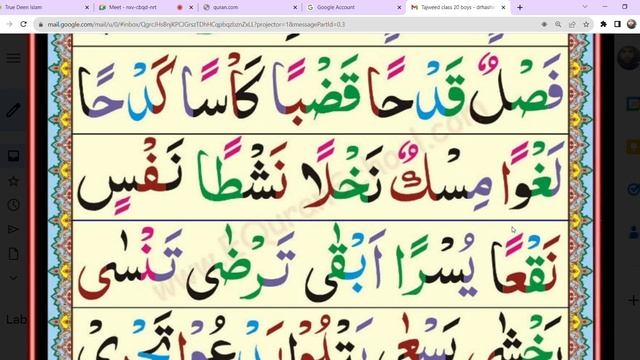 True Deen Islam
Meet - nxv-cbqd-nrt
quran.com
Google Account
Tajweed class 20 boys - drhash
mail.google.com/mail/u/0/#inbox/
?projector=1&messagePartId=0.3
فَصْلٌ قَدْحًا قَضْبًا كَاْسًا كَدْحًا
لَغْوًا مِسْكٌ نَخْلًا نَشْطًا نَفْسٍ
نَقْعًا يُسْرًا اَبْقٰى تَرْضٰى تَنْسٰى
يَخْشٰى يَسْعٰى يَتْلُوْا يَدْعُوْا تَجْرِىْ
Lab